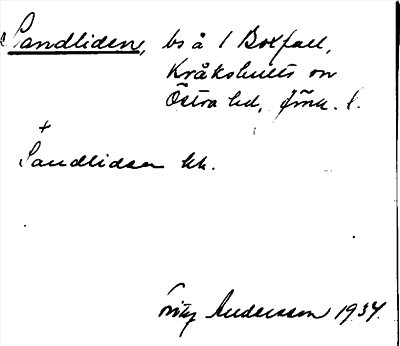 Sandliden, bs å 1 Boxfall,
Kråkshults sn
Östra hd, Jönk. l.
+
Sandliden kk.
Fritz Andersson 1934.